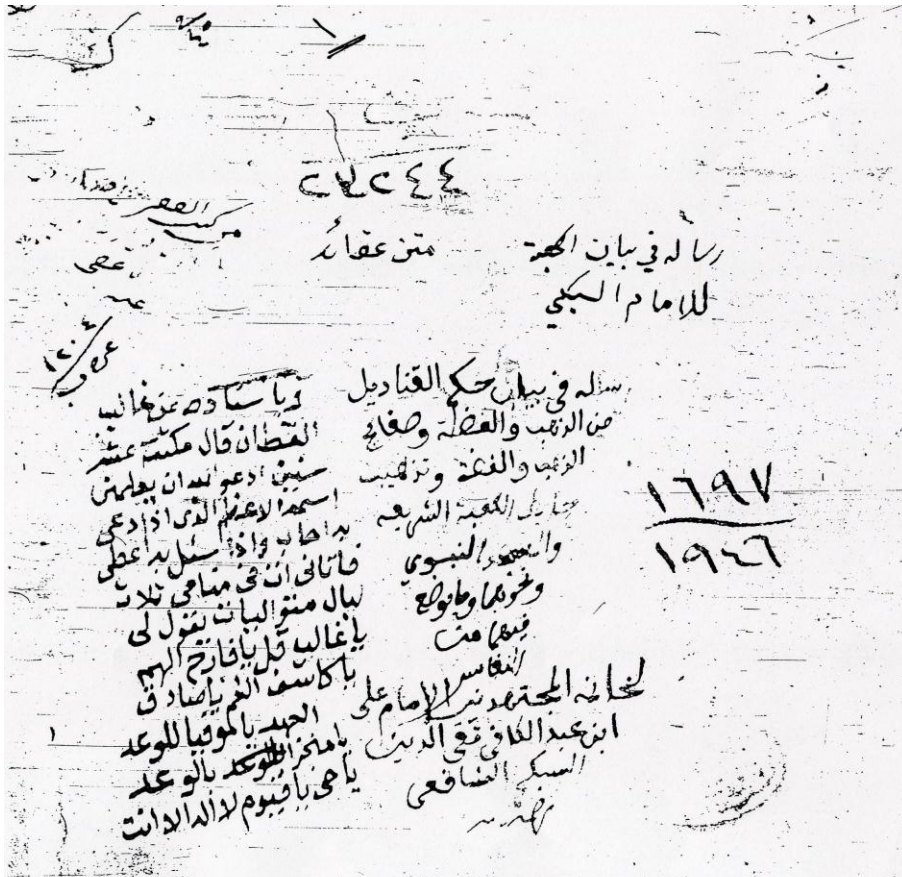 ٢٧٢٤٤
من كتب الفقير
رساله في بيان الحجة
للامام السبكي
متن عقائد
عفى
عنه
١٢٠٤
رساله في بيان حكم القناديل
من الذهب والفضة وصفائح
الذهب والفضة وتذهيب
الكعبة الشريفه
النبوي
ونحوهما وما يوضع
فيهما من
النفائس
لخاتمة المجتهدين الامام على
ابن عبد الكافى تقى الدين
السبكى الشافعى
وباسناده عن غالب
القطان قال مكثت عشر
سنين ادعو الله ان يعلمنى
اسمه الاعظم الذى اذا دعى
به اجاب واذا سئل به اعطى
فاتانى ات فى منامى ثلاث
ليال متواليات يقول لى
يا غالب قل يا فارج الهم
يا كاشف الغم يا صادق
العهد يا موفيا للوعد
يا منجز للوعد بالوعد
يا حى يا قيوم لا اله الا انت
١٦٩٧
١٩٤٦